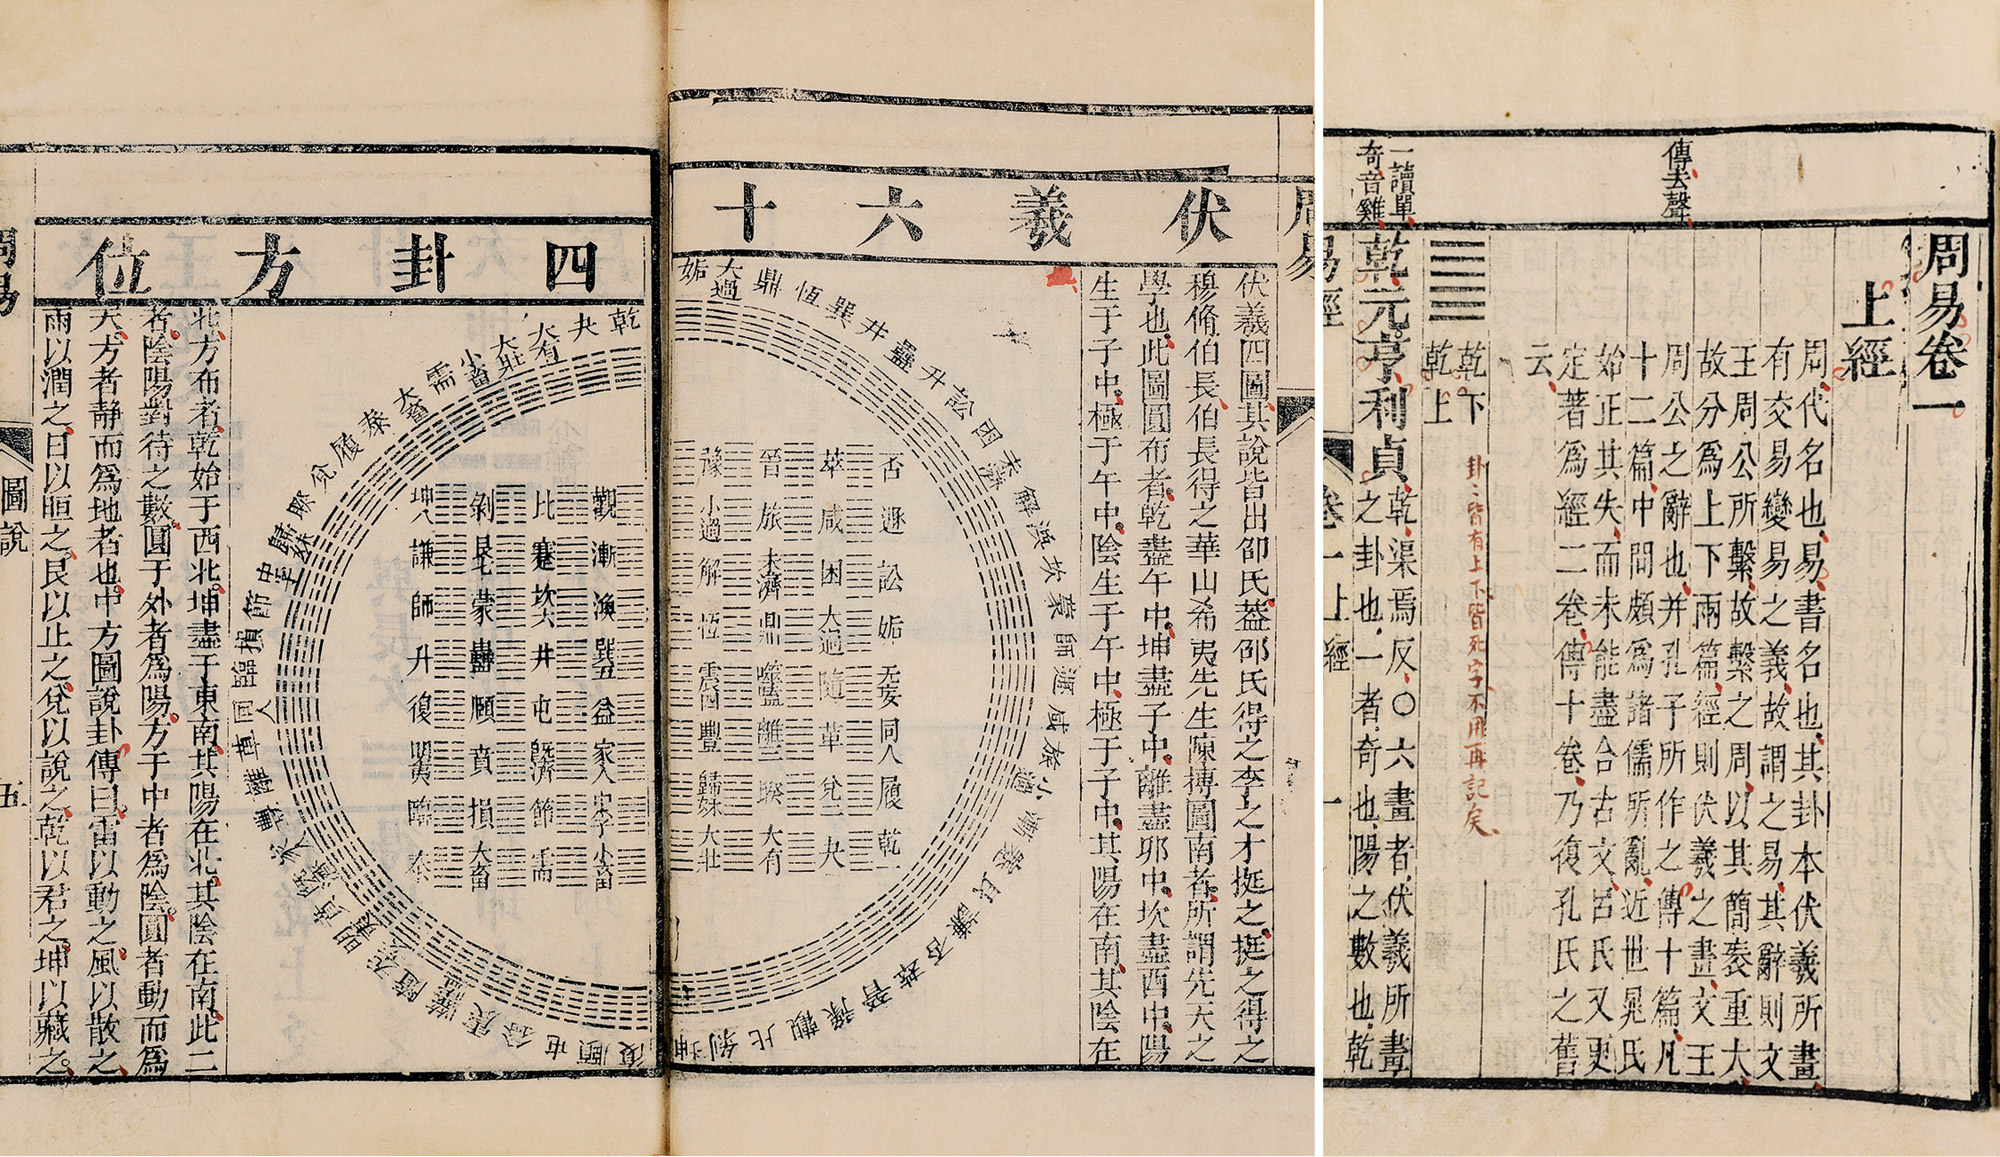 伏羲六十
伏羲四圖其說皆出邵氏葢邵氏得之李之才挺之挺之得之
穆脩伯長伯長得之華山希夷先生陳摶圖南者所謂先天之
學也此圖圓布者乾盡午中坤盡子中離盡卯中坎盡酉中陽
生于子中極于午中陰生于午中極于子中其陽在南其陰在
姤 大過 鼎 恆 巽 井 蠱 升 訟 困 未濟 解 渙 坎 蒙 師 遯 咸 旅 小過 漸 蹇 艮 謙 否 萃 晉 豫 觀 比 剝 坤
否 遯 訟 姤 无妄 同人 履 乾一
萃 咸 困 大過 隨 革 兌 夬
晉 旅 未濟 鼎 噬嗑 離三 睽 大有
豫 小過 解 恆 震四 豐 歸妹 大壯
四卦方位
乾 夬 大有 大壯 小畜 需 大畜 泰 履 兌 睽 歸妹 中孚 節 損 臨 同人 革 離 豐 家人 既濟 賁 明夷 无妄 隨 噬嗑 震 益 屯 頤 復
觀 漸 渙 巽五 益 家人 中孚 小畜
比 蹇 坎六 井 屯 既濟 節 需
剝 艮七 蒙 蠱 頤 賁 損 大畜
坤八 謙 師 升 復 明夷 臨 泰
北方布者乾始于西北坤盡于東南其陽在北其陰在南此二
者陰陽對待之數圓于外者為陽方于中者為陰圓者動而為
天方者靜而為地者也中方圖說卦傳曰雷以動之風以散之
雨以潤之日以晅之艮以止之兌以說之乾以君之坤以藏之
周易
圖說
五
周易卷一
上經
傳去聲
周代名也易書名也其卦本伏羲所畫
有交易變易之義故謂之易其辭則文
王周公所繫故繫之周以其簡袠重大
故分為上下兩篇經則伏羲之畫文王
周公之辭也并孔子所作之傳十篇凡
十二篇中間頗為諸儒所亂近世晁氏
始正其失而未能盡合古文呂氏又更
定著為經二卷傳十卷乃復孔氏之舊
云
乾下
乾上
卦〻皆有上下皆死字不用再記矣
一讀單
奇音雞
乾元亨利貞 乾渠焉反〇六畫者伏羲所畫
之卦也一者奇也陽之數也乾
易經
卷一上經
一